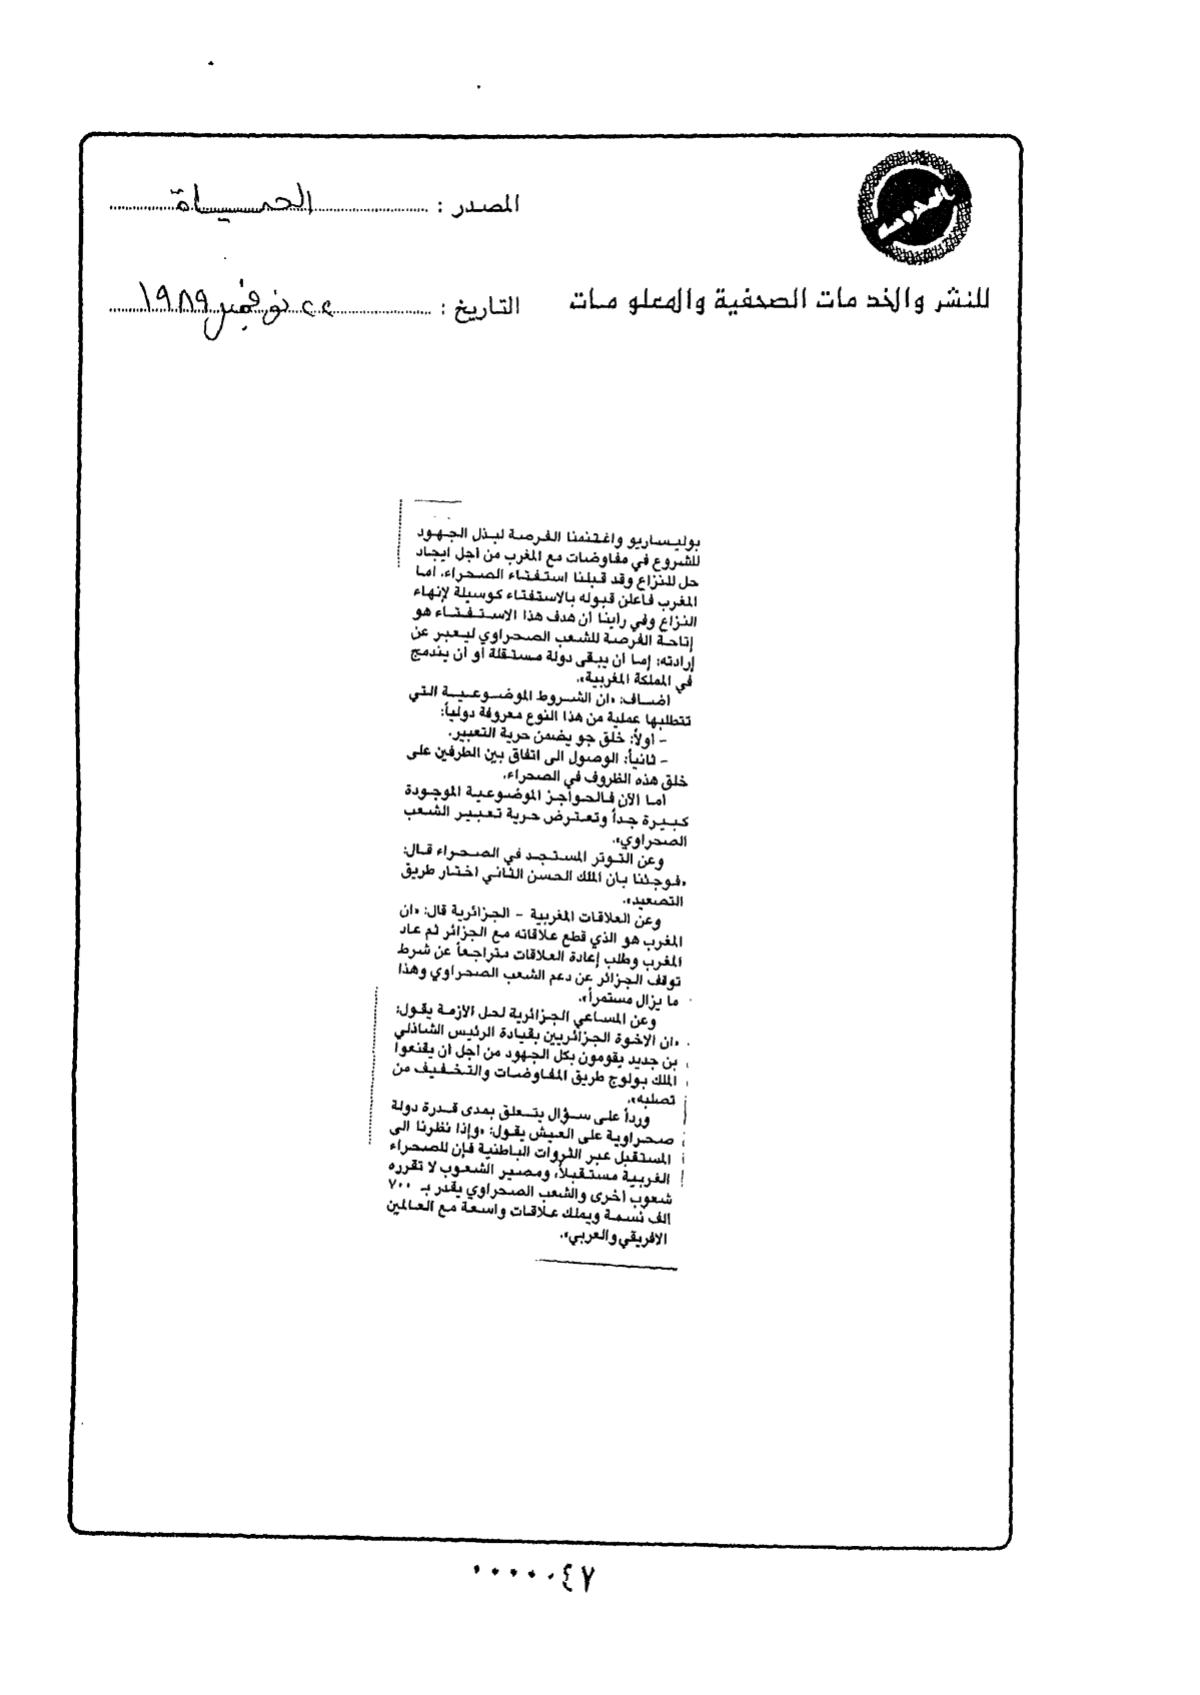 المصدر : الحياة
للنشر والخدمات الصحفية والمعلومات
التاريخ : ٢٢ نوفمبر ١٩٨٩
بوليساريو واغتنمنا الفرصة لبذل الجهود
للشروع في مفاوضات مع المغرب من أجل ايجاد
حل للنزاع وقد قبلنا استفتاء الصحراء. اما
المغرب فاعلن قبوله بالاستفتاء كوسيلة لإنهاء
النزاع وفي راينا ان هدف هذا الاستفتاء هو
إتاحة الفرصة للشعب الصحراوي ليعبر عن
إرادته: إما ان يبقى دولة مستقلة او ان يندمج
في المملكة المغربية».
اضاف: «ان الشروط الموضوعية التي
تتطلبها عملية من هذا النوع معروفة دولياً:
- أولاً: خلق جو يضمن حرية التعبير.
- ثانياً: الوصول الى اتفاق بين الطرفين على
خلق هذه الظروف في الصحراء.
أما الآن فالحواجز الموضوعية الموجودة
كبيرة جداً وتعترض حرية تعبير الشعب
الصحراوي».
وعن التوتر المستجد في الصحراء قال:
«فوجئنا بان الملك الحسن الثاني اختار طريق
التصعيد».
وعن العلاقات المغربية - الجزائرية قال: «ان
المغرب هو الذي قطع علاقاته مع الجزائر ثم عاد
المغرب وطلب إعادة العلاقات متراجعاً عن شرط
توقف الجزائر عن دعم الشعب الصحراوي وهذا
ما يزال مستمراً».
وعن المساعي الجزائرية لحل الأزمة يقول:
«ان الاخوة الجزائريين بقيادة الرئيس الشاذلي
بن جديد يقومون بكل الجهود من اجل أن يقنعوا
الملك بولوج طريق المفاوضات والتخفيف من
تصلبه».
ورداً على سؤال يتعلق بمدى قدرة دولة
صحراوية على العيش يقول: «وإذا نظرنا الى
المستقبل عبر الثروات الباطنية فإن للصحراء
الغربية مستقبلاً، ومصير الشعوب لا تقرره
شعوب أخرى والشعب الصحراوي يقدر بـ ٧٠٠
الف نسمة ويملك علاقات واسعة مع العالمين
الافريقي والعربي».
٠٠٠٠٠٤٧